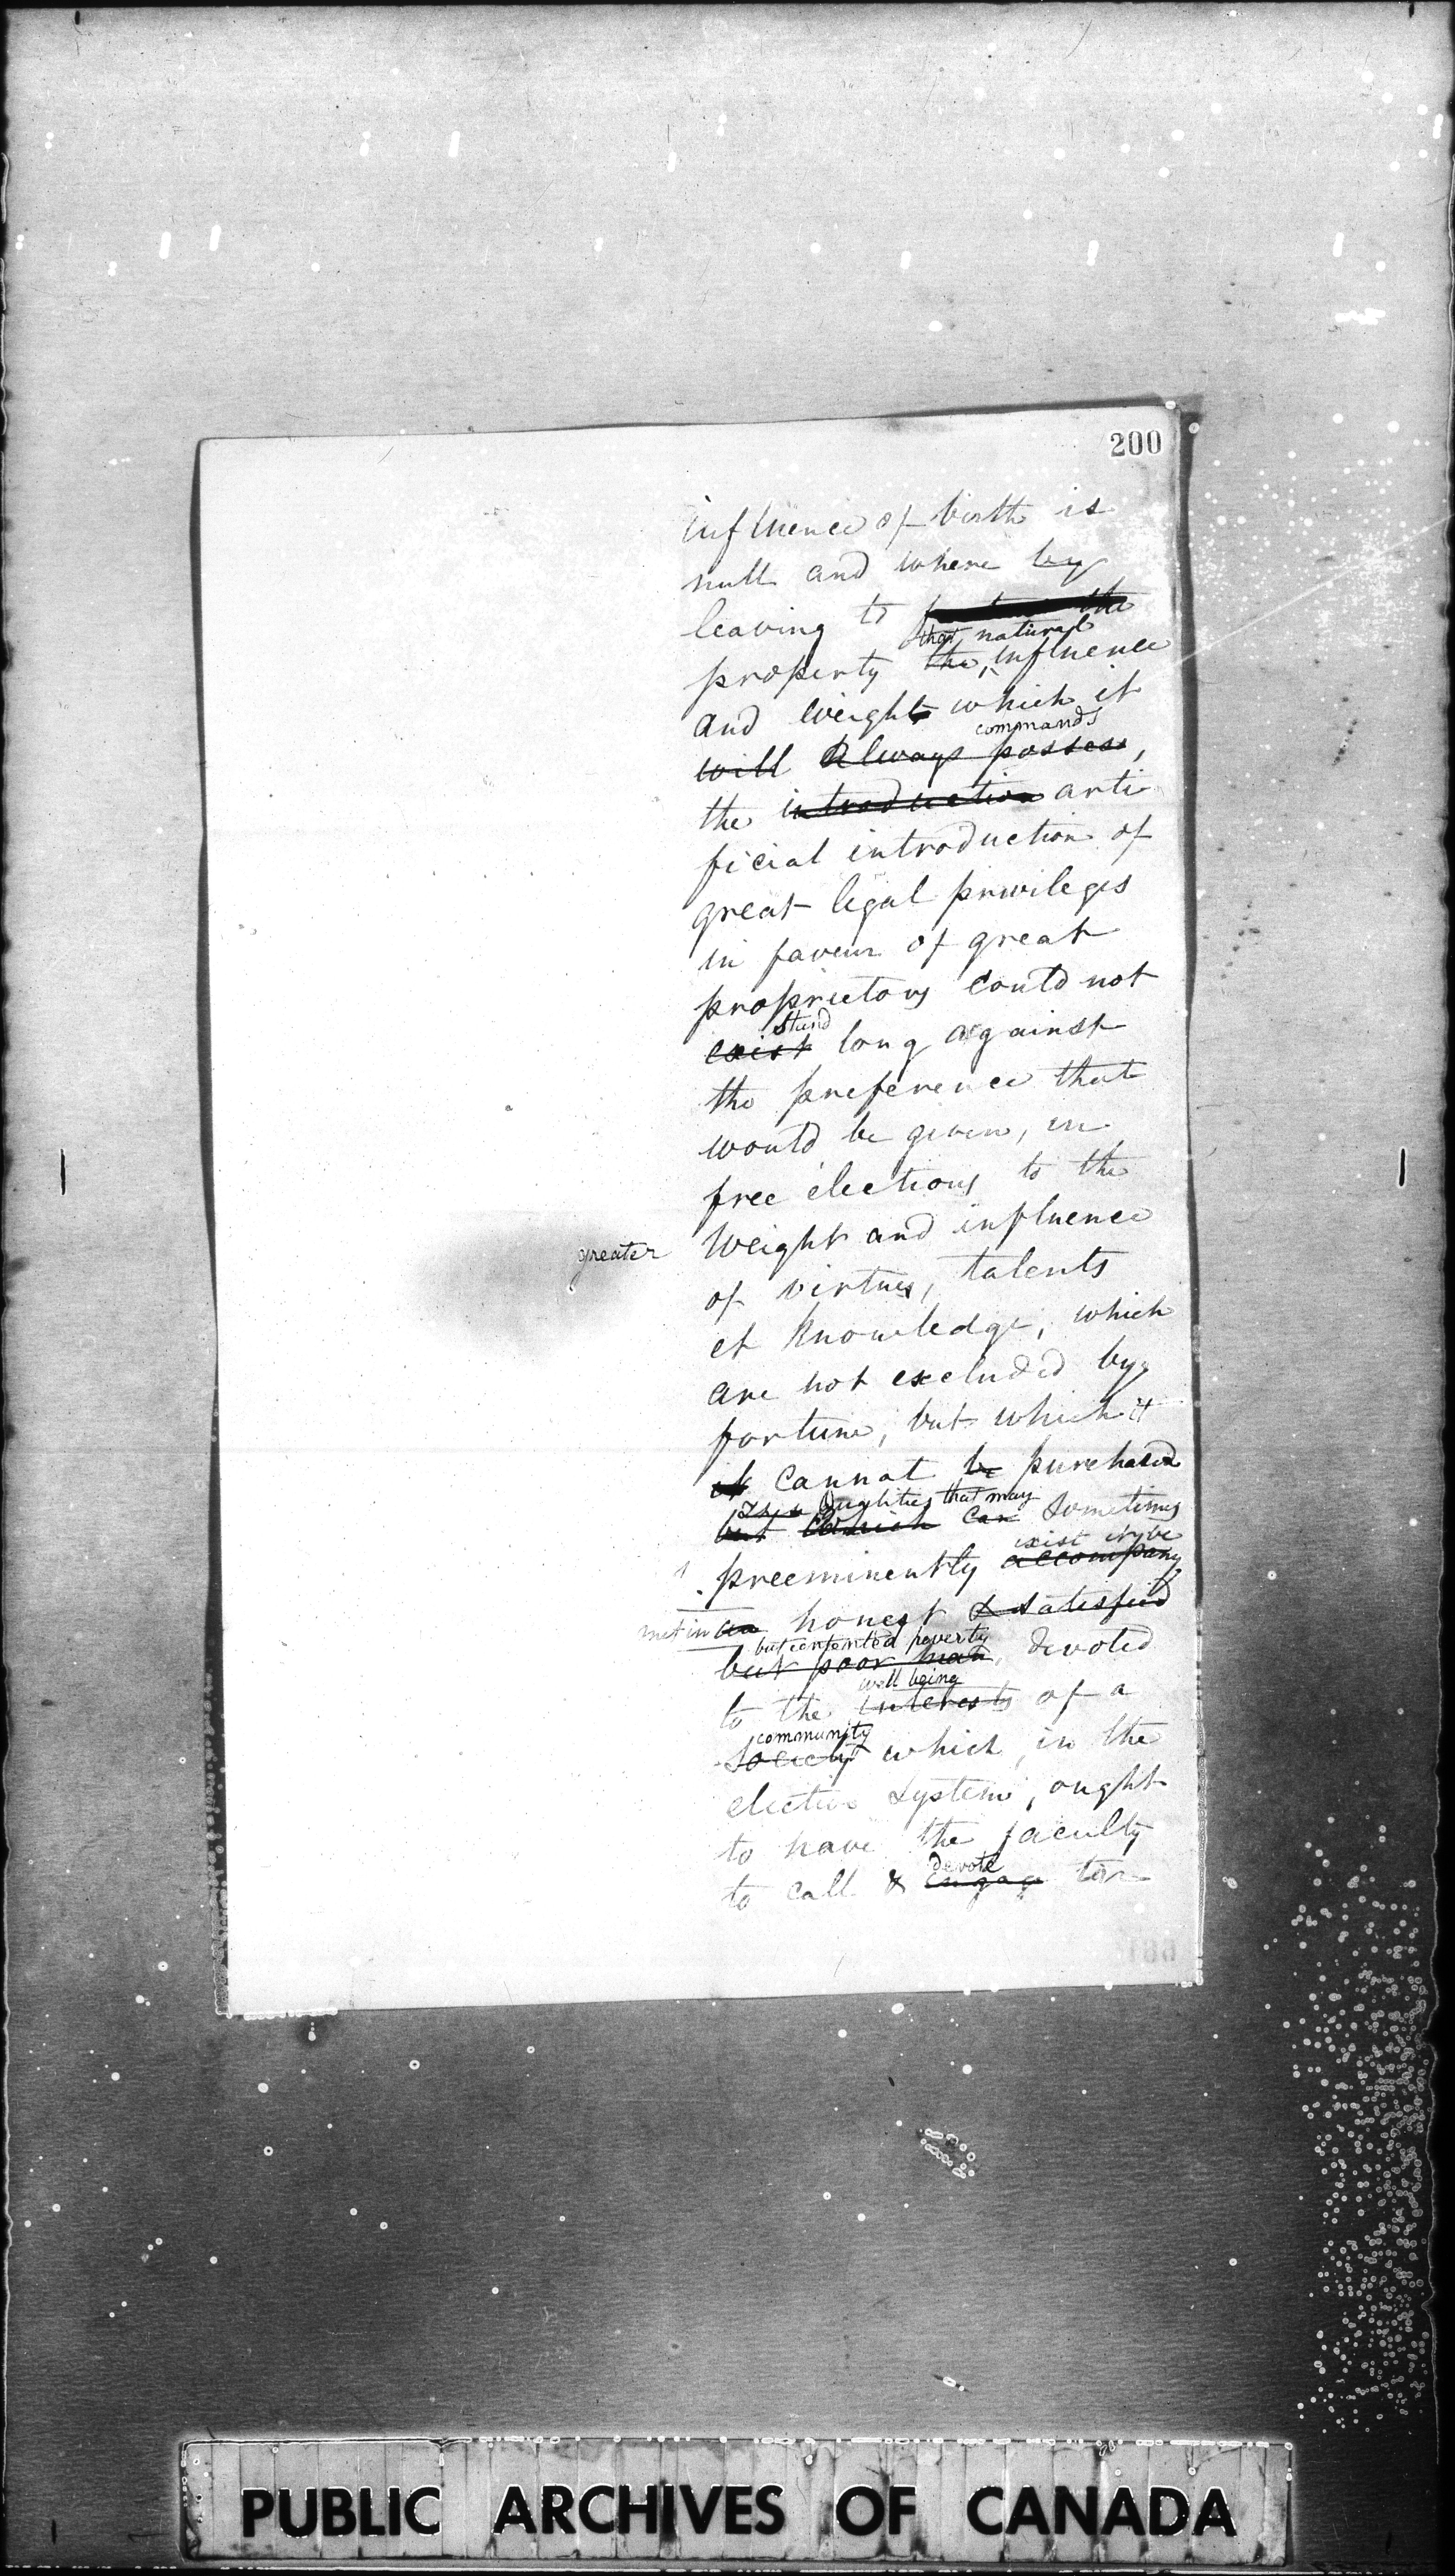 200
influence of birth is
null and where by
leaving to the
that natural
property the influence
and weight which it
commands
will always possess,
the introduction arti
ficial introduction of
great legal privileges
in favour of great
proprietors could not
stand
exist long against
the preference that
would be given, in
free elections to the
greater weight and influence
of virtues, talents
et knowledge, which
are not excluded by
fortune, but which it
cannot be purchased
Qualities that may
but which can sometimes
exist
preeminently accompany
met in an honest & satisfied
but contented poverty
but poor man, devoted
well being
to the interests of a
community
society which, in the
elective system, ought
to have the faculty
devote
to call & engage to
PUBLIC ARCHIVES OF CANADA